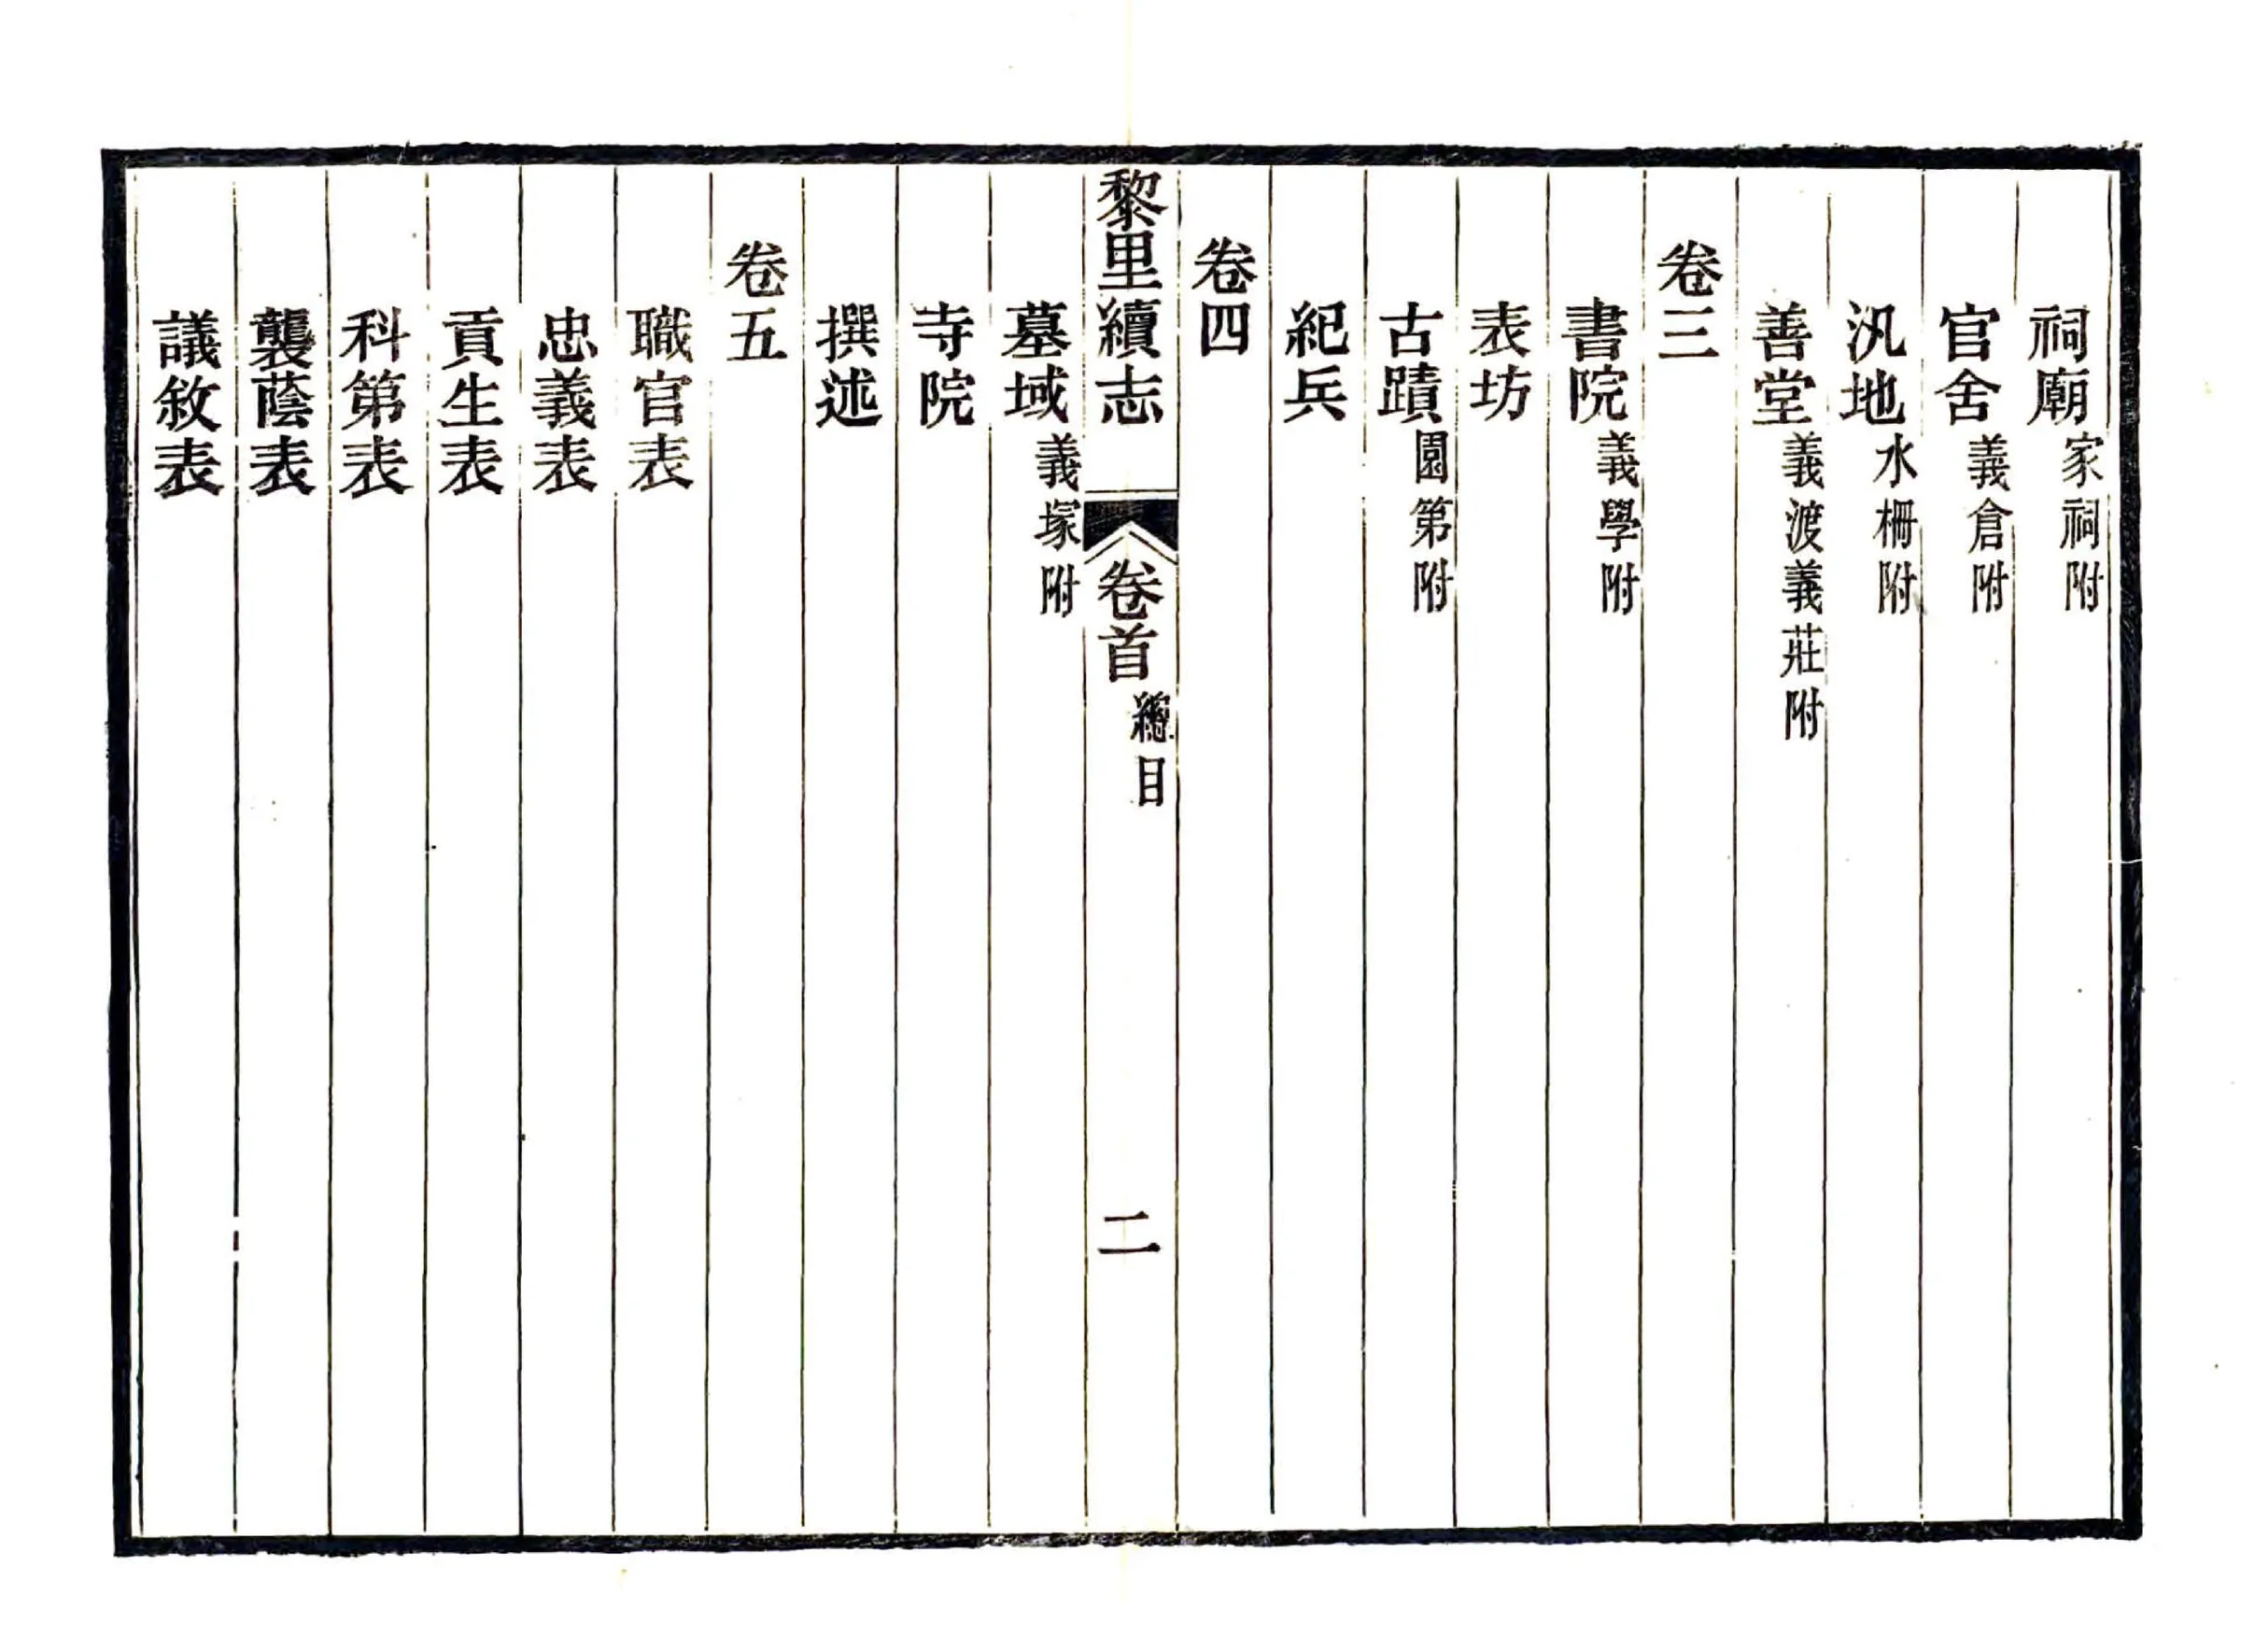 祠廟家祠附
官舍義倉附
汛地水柵附
善堂義渡義莊附
卷三
書院義學附
表坊
古蹟園第附
紀兵
卷四
黎里續志 卷首 總目 二
墓域義塚附
寺院
撰述
卷五
職官表
忠義表
貢生表
科第表
襲蔭表
議敘表